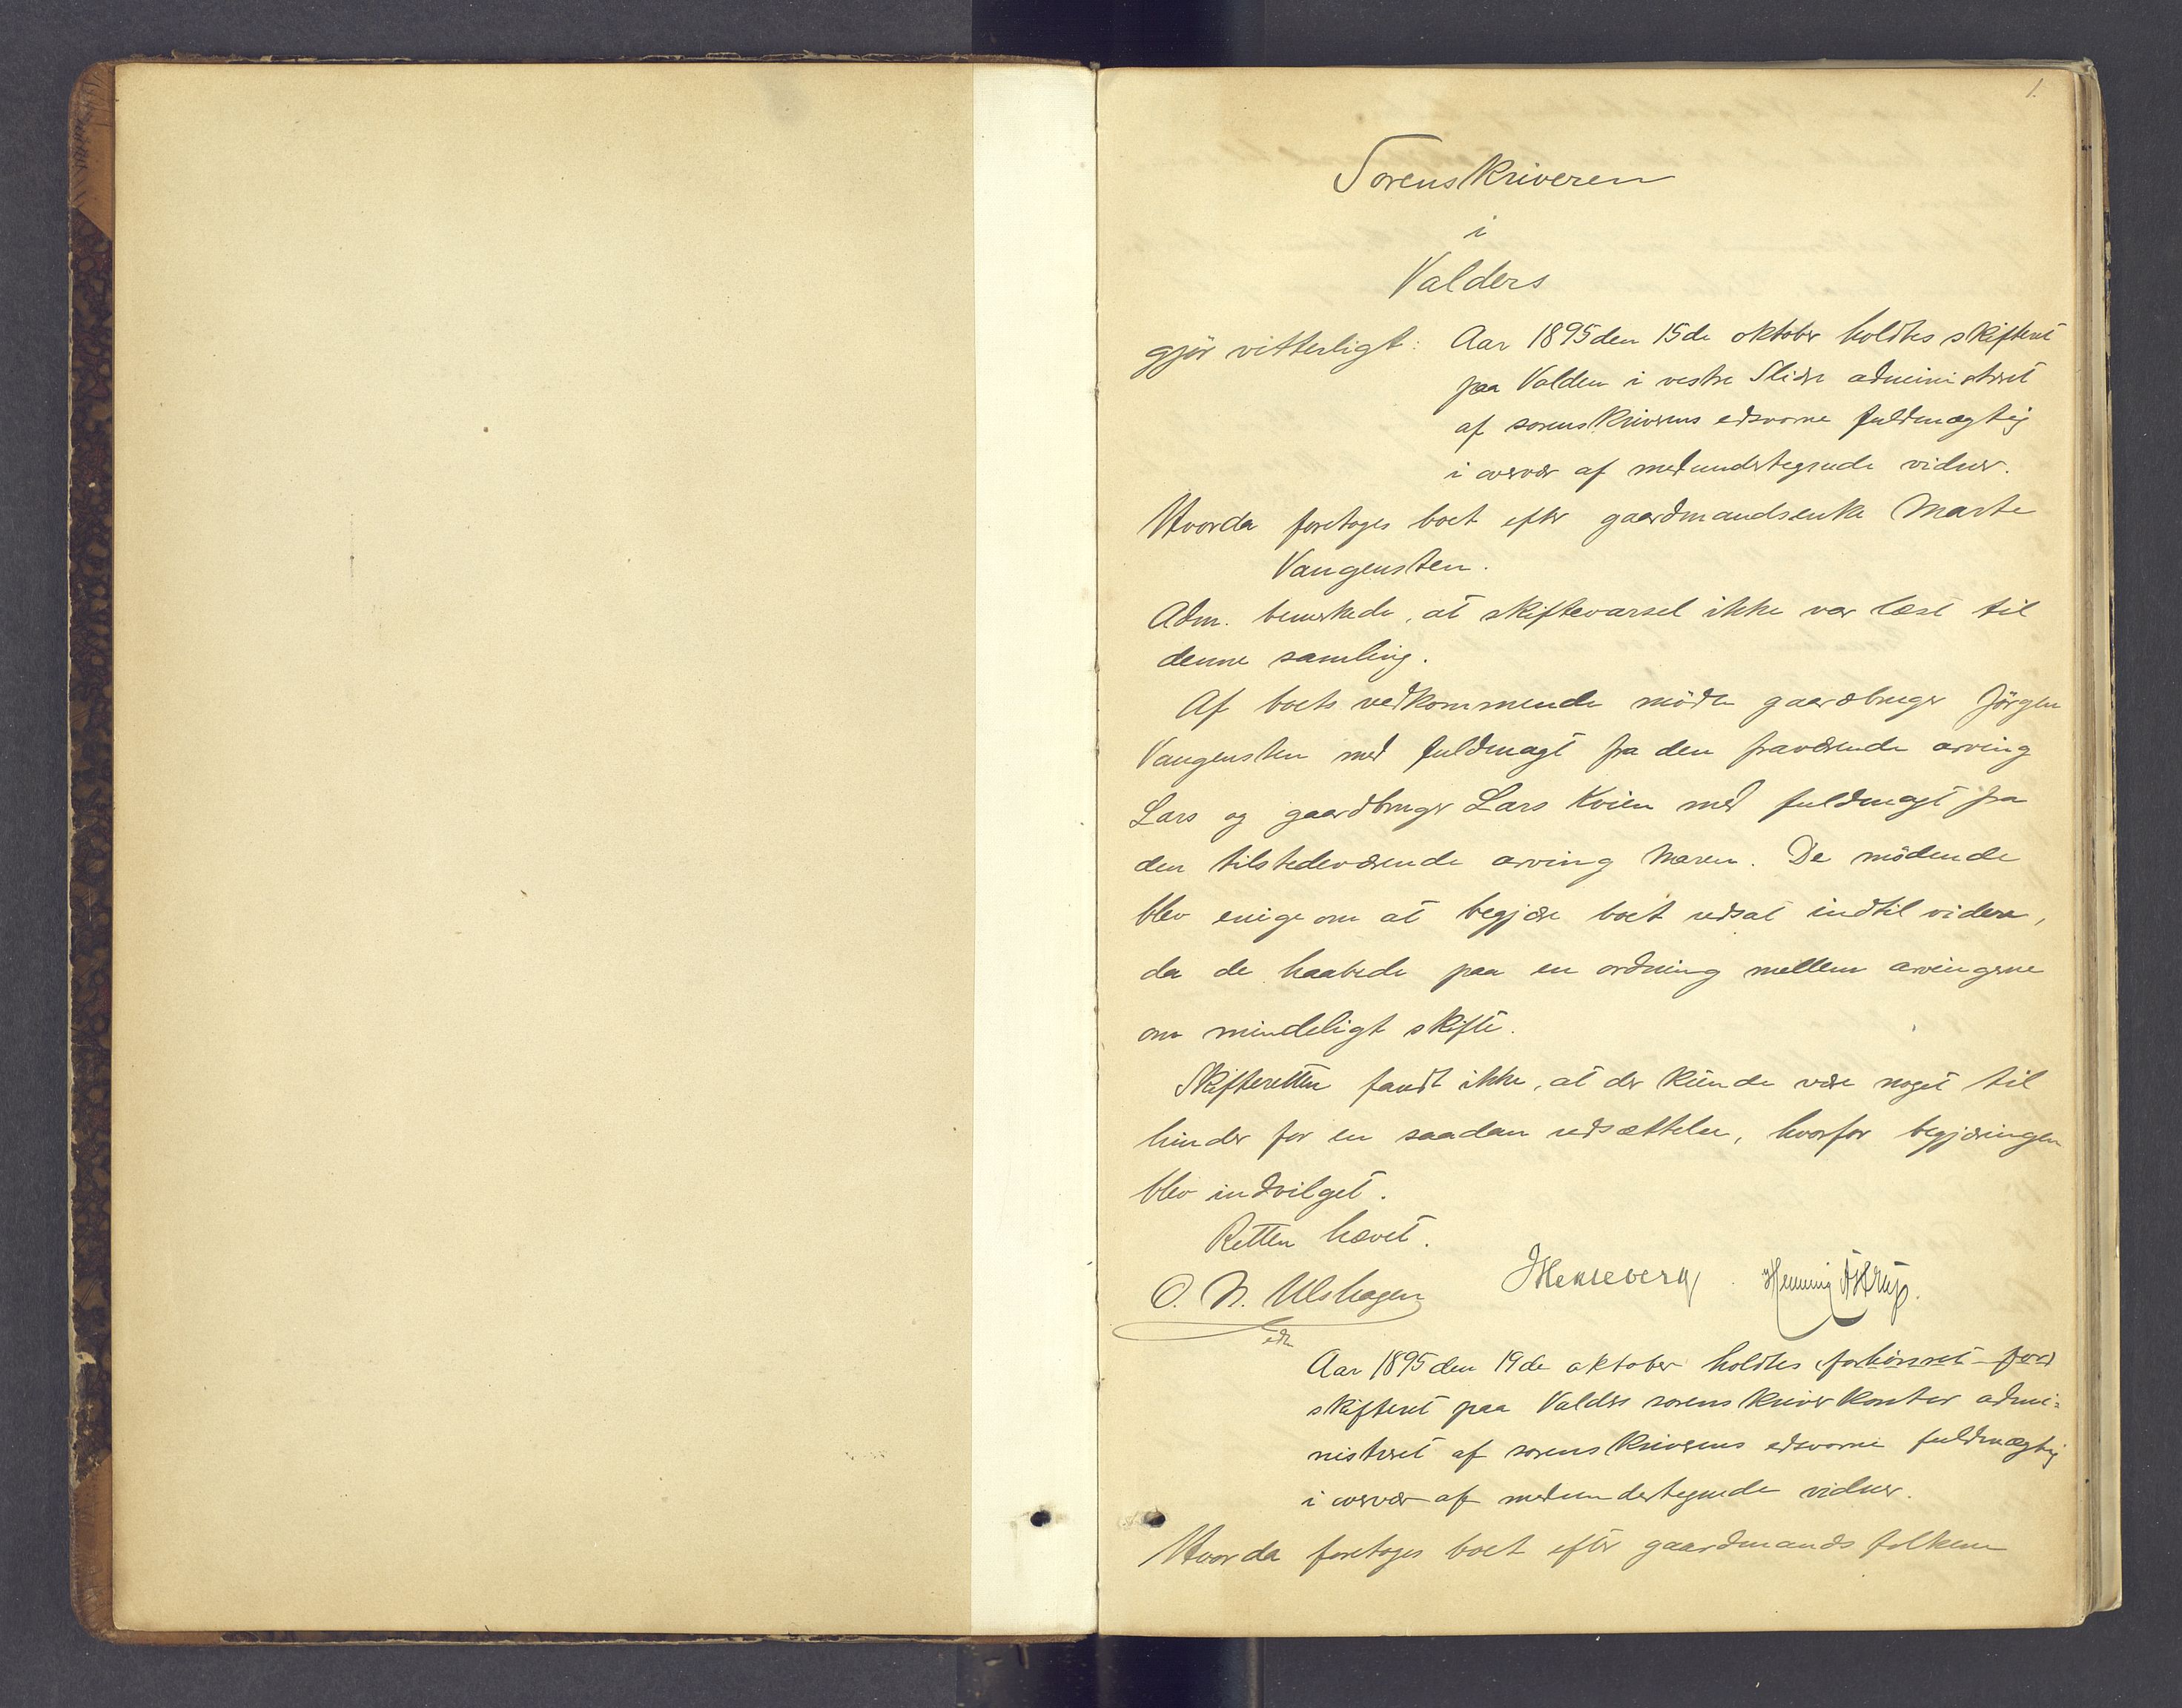 1.
Sorenskriveren
i
Valders
gjör vitterligt: Aar 1895 den 15de oktober holdtes skifteret
paa Volden i vestre Slidre administreret
af sorenskriverens edsvorne fuldmægtig
i overvær af medundertegnede vidner.
Hvorda foretoges boet efter gaardmandsenke Marte
Vangensten.
Adm. bemerkede, at skiftevarsel ikke var læst til
denne samling.
Af boets vedkommende mödte gaardbruger Jörgen
Vangensten med fuldmagt fra den fraværende arving
Lars og gaardbruger Lars Kvien med fuldmagt fra
den tilstedeværende arving Maren. De mödende
blev enige om at begjære boet udsat indtil videre,
da de haabede paa en ordning mellem arvingerne
om mindeligt skifte.
Skifteretten fandt ikke, at der kunde være noget til
hinder for en saadan udsættelse, hvorfor begjæringen
blev indvilget.
Retten hævet.
O. N. Ulshagen Henning Astrup.
edv
Aar 1895 den 19de oktober holdtes forhörsret
skifteret paa Valders sorenskriverkontor admi-
nistreret af sorenskriverens edsvorne fuldmægtig
i overvær af medundertegnede vidner.
Hvorda foretoges boet efter gaardmandsfolkene